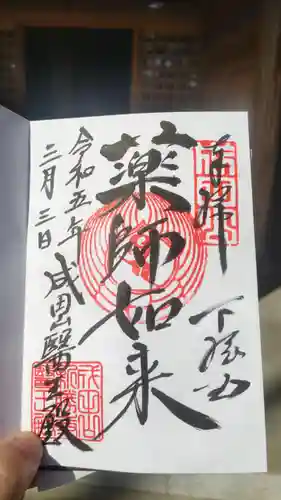 奉拝
下総国
薬師如来
成田山醫王殿
令和五年
三月三日